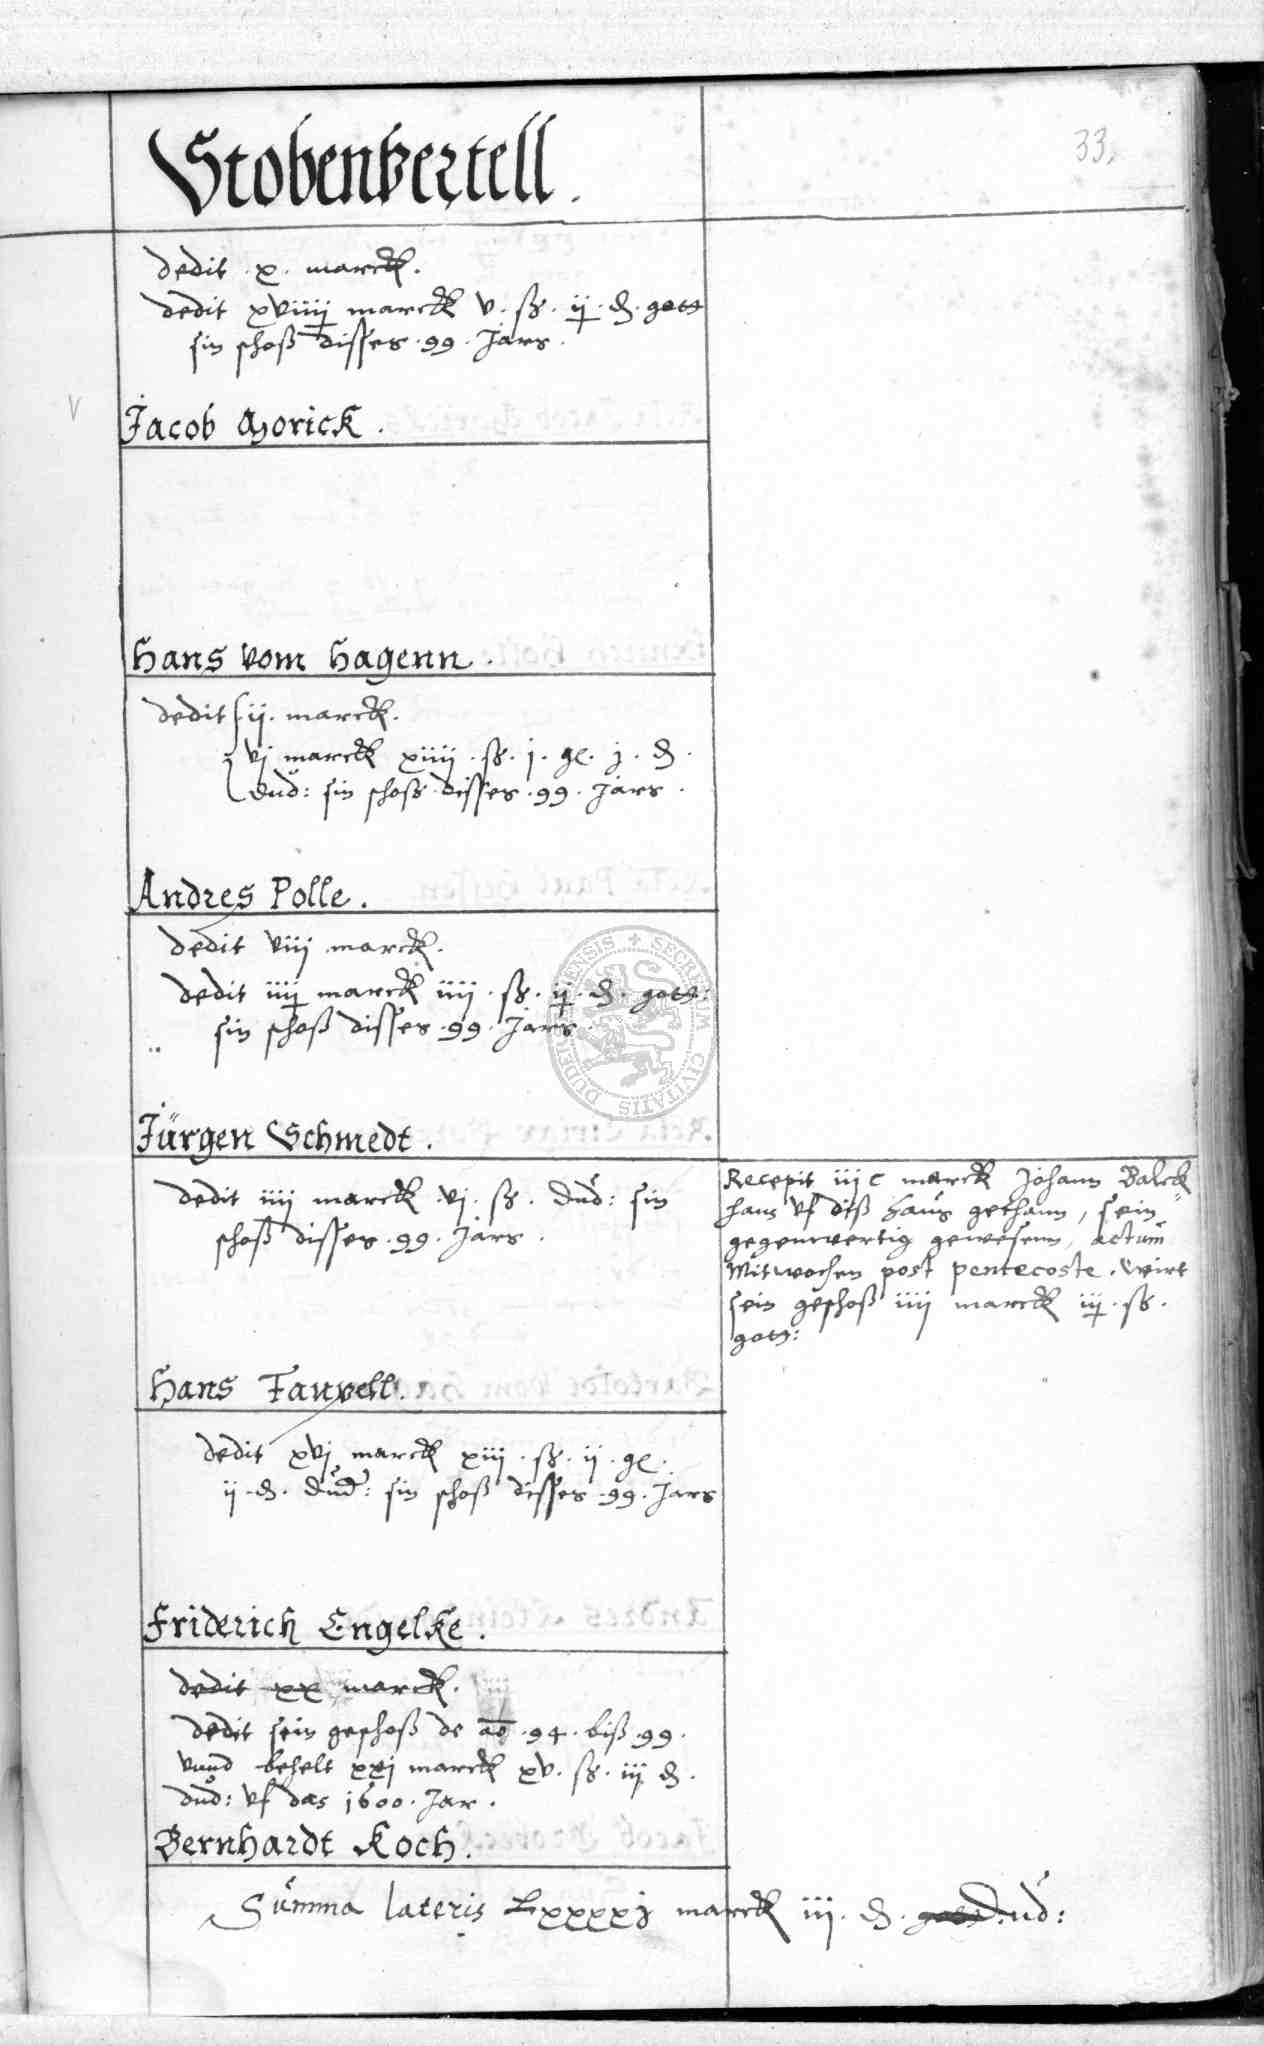 Stobenvertell.
33.
dedit .x. marck.
dedit xviiij marck v. ß. ij. d. gott
sin schoß disses .99. Jars.
V
Jacob Morick.
Hans vom Hagenn.
dedit ij. marck.
vj marck xiiij. ß. j. gl. j. d.
dud: sin schoß disses .99. Jars.
Andres Polle.
dedit viij marck.
dedit iiij marck iiij. ß. ij. d. gott:
sin schoß disses .99. Jars.
Jürgen Schmedt.
dedit iiij marck vj. ß. dud: sin
schoß disses .99. Jars.
Recepit iij c marck Johann Balck
hans vf diß Haus gethann, sein
gegenwertig gewesenn, actum
Mitwochen post pentecoste. wirt
sein geschoß iiij marck iij. ß.
gott:
Hans Tauvell.
dedit xvj marck xiij. ß. ij. gl.
ij. d. dud: sin schoß disses .99. Jars
Friderich Engelke.
dedit xx marck.
dedit sein geschoß de ao .94. biß .99.
vnnd behelt xxj marck xv. ß. iij d.
dud: vf das 1600. Jar.
Bernhardt Koch.
Summa lateris Lxxxxj marck iij. d. dud:
SECRETUM CIVITATIS DUDERSTADENSIS